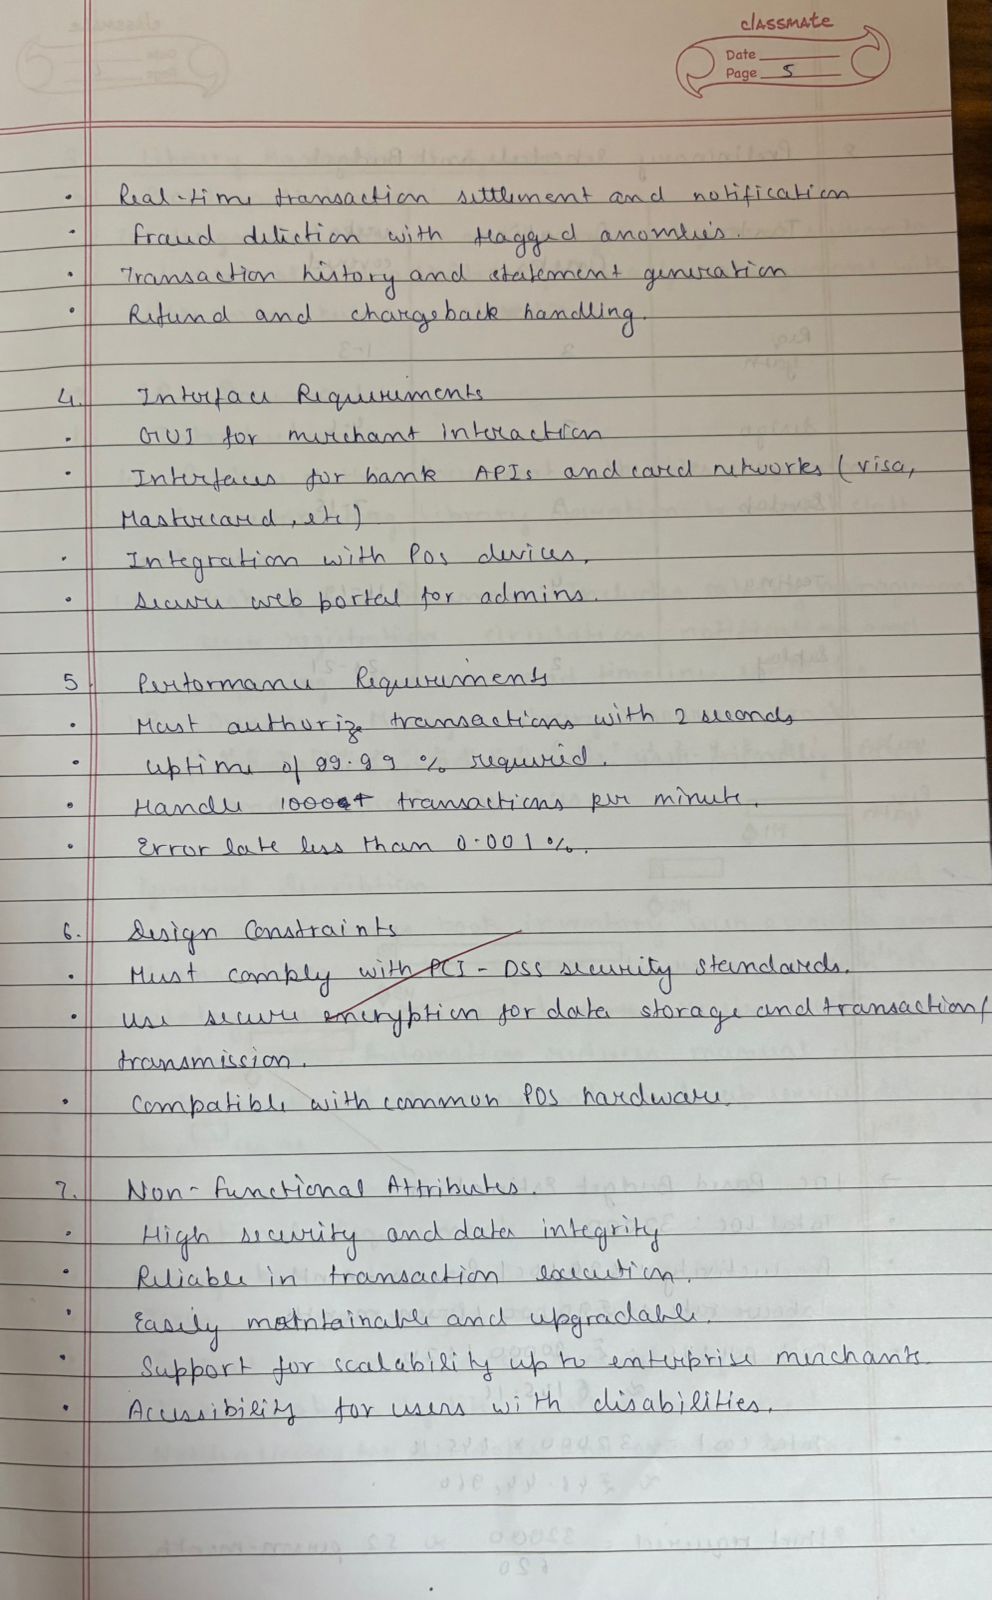 classmate
Date
Page 5
• Real-time transaction settlement and notification
• Fraud detection with flagged anomlies.
• Transaction history and statement generation
• Refund and chargeback handling.
4. Interface Requirements
• GUI for merchant interaction
• Interfaces for bank APIs and card networks (visa,
Mastercard, etc)
• Integration with POS devices.
• Secure web portal for admins.
5 Performance Requirements
• Must authorize transactions with 2 seconds
• Uptime of 99.99 % required.
• Handle 1000+ transactions per minute.
• Error late less than 0.001 %.
6. Design Constraints
• Must comply with PCI - DSS security standards.
• Use secure encryption for data storage and transaction/
transmission.
• Compatible with common POS hardware.
7. Non-functional Attributes.
• High security and data integrity
• Reliable in transaction execution.
• Easily maintainable and upgradable.
• Support for scalability up to enterprise merchants.
• Accessibility for users with disabilities.